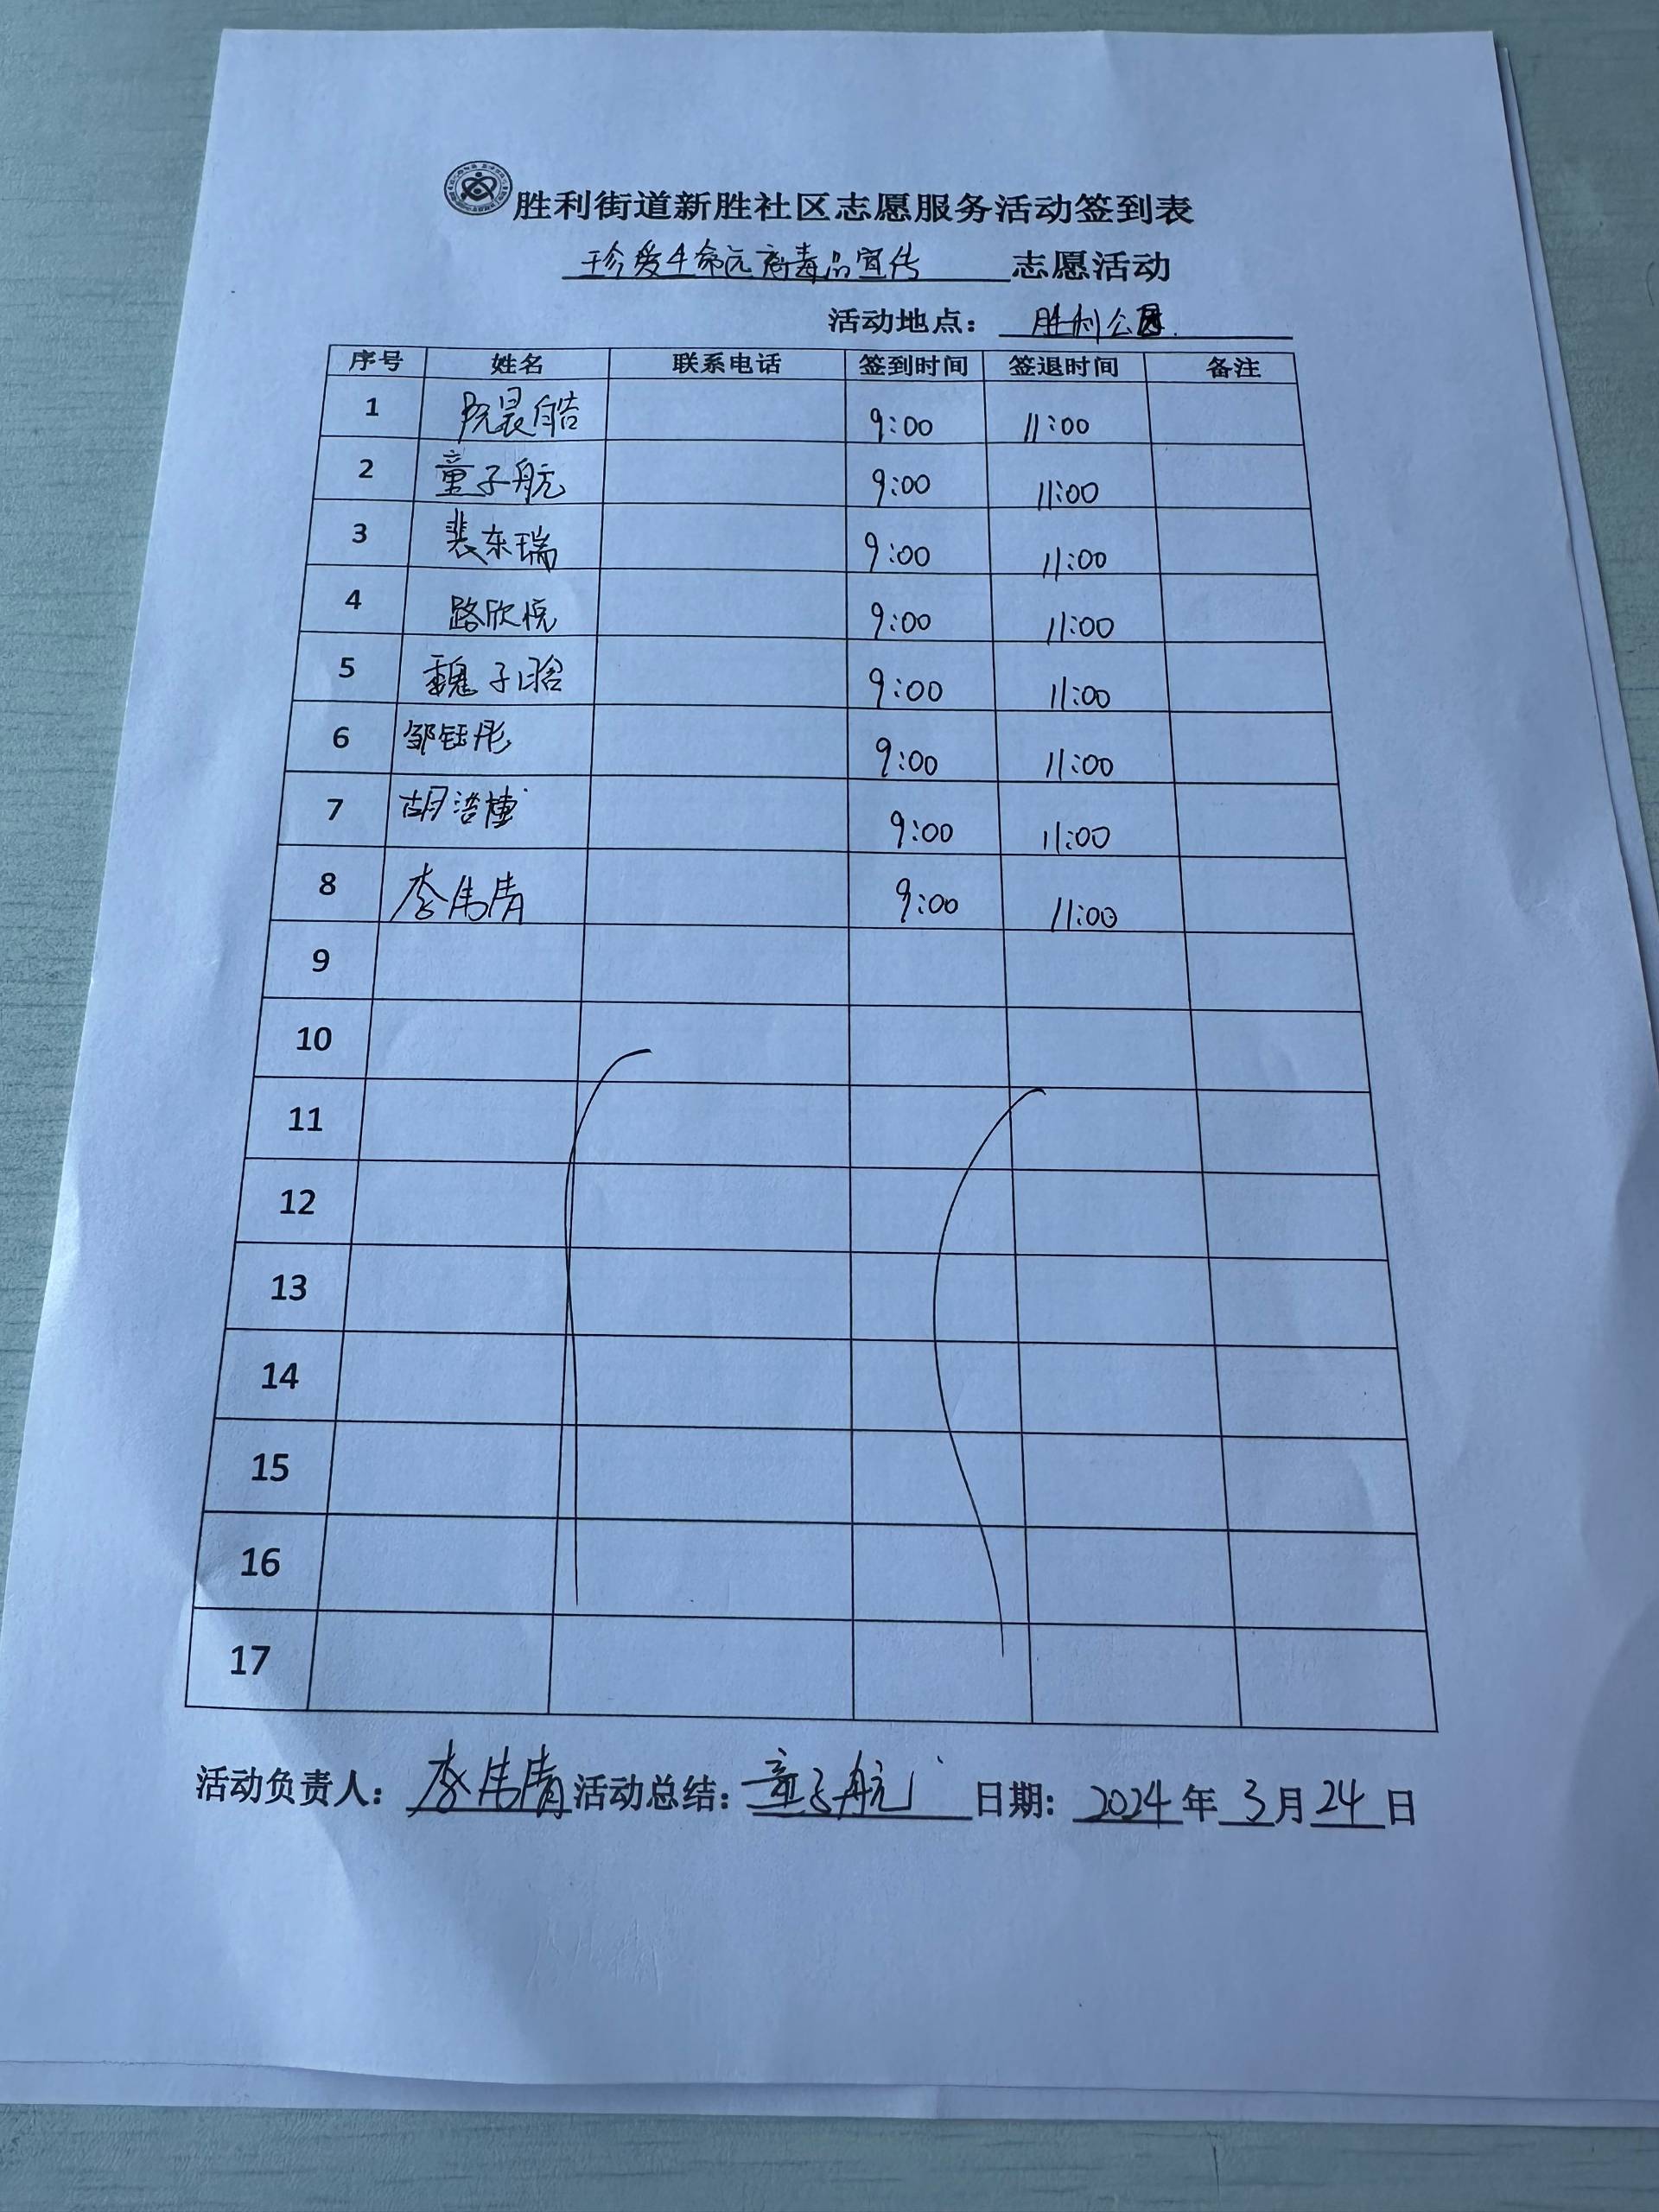 胜利街道新胜社区志愿服务活动签到表
珍爱生命远离毒品宣传 志愿活动
活动地点： 胜利公园
序号 姓名 联系电话 签到时间 签退时间 备注
1 阮晨皓 9:00 11:00
2 童子航 9:00 11:00
3 裴东瑞 9:00 11:00
4 路欣悦 9:00 11:00
5 魏子晗 9:00 11:00
6 邹钰彤 9:00 11:00
7 胡浩 9:00 11:00
8 李伟清 9:00 11:00
9
10
11
12
13
14
15
16
17
活动负责人： 李伟清 活动总结： 童子航 日期： 2024 年 3 月 24 日